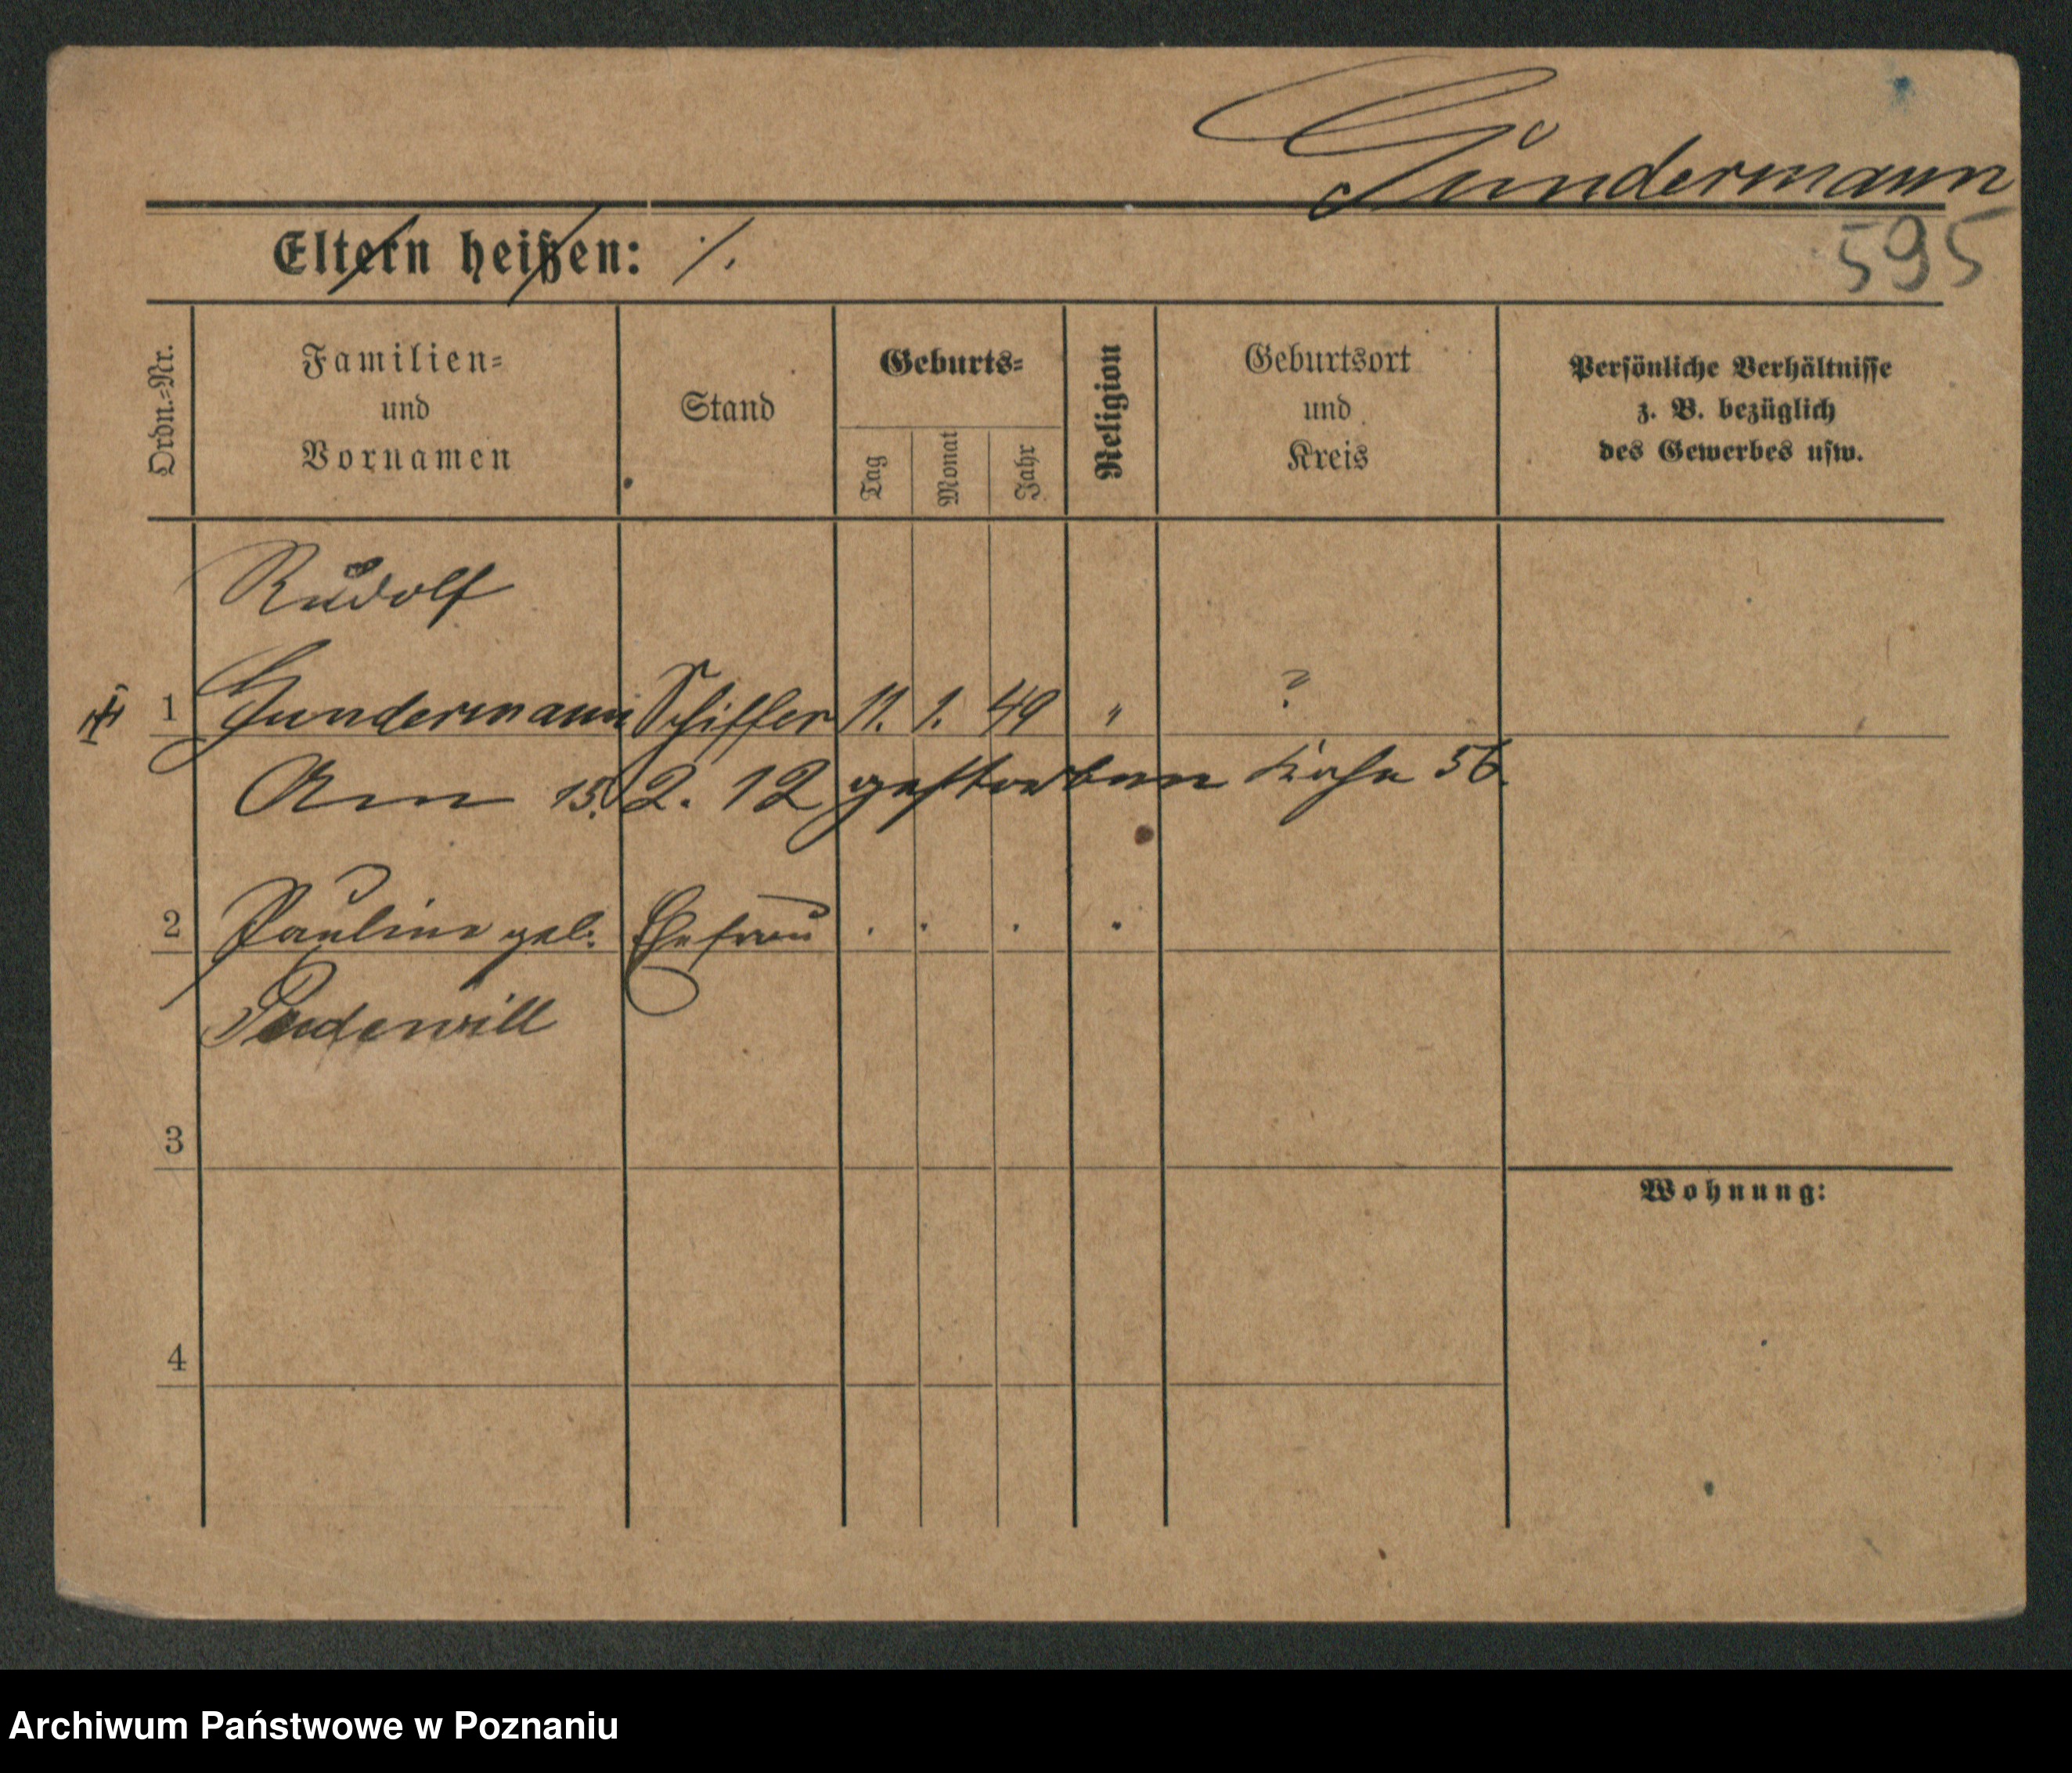 Gundermann
595
Eltern heißen: ./.
Ordn.=Nr.
Familien=
und
Vornamen
Stand
Geburts=
Tag
Monat
Jahr
Religion
Geburtsort
und
Kreis
Persönliche Verhältnisse
z. B. bezüglich
des Gewerbes usw.
Rudolf
1 Gundermann Schiffer 11. 1. 49 " ?
Am 15. 2. 12 gestorben 56.
2 Pauline geb. Ehefrau . . . .
Pudewill
3
Wohnung:
4
Archiwum Państwowe w Poznaniu